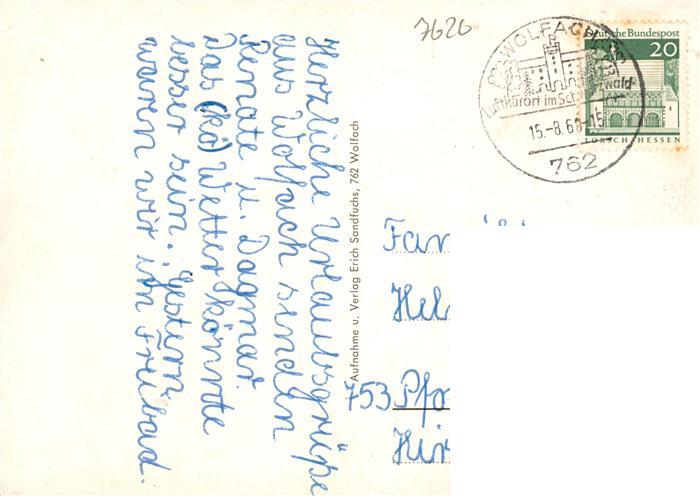 Herzliche Urlaubsgrüße
aus Wolfach senden
Renate u. Dagmar.
Das (kö) Wetter könnte
besser sein. Gestern
waren wir im Freibad.
Aufnahme u. Verlag Erich Sandfuchs, 762 Wolfach
7620
WOLFACH
Luftkurort im Sch wald
15.-8.68-15
762
Deutsche Bundespost
20
LORSCH/HESSEN
Fam
Hel
753 Pfo
Hir